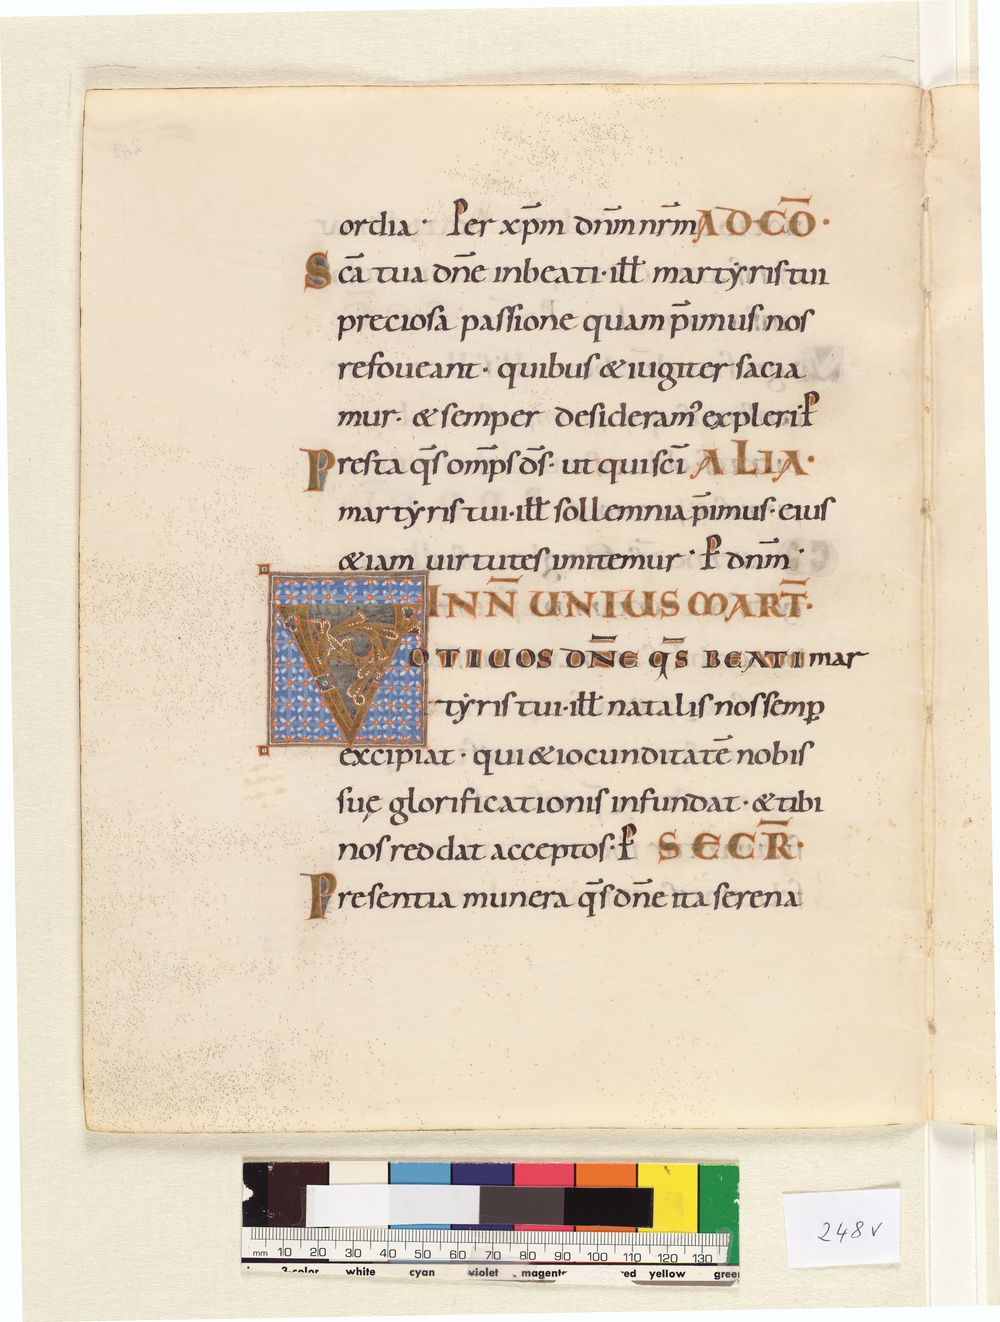 ordia · Per xp̄m dn̄m nr̄m AD CŌ·
Scā tua dn̄e in beati · ill̄ martẏris tui
preciosa passione quam p̄imus nos
refoueant · quibus & iugiter sacia
mur · & semper desideram᾽ expleri · P̄
Presta q̄s om̄ps d̄s · ut qui sc̄i ALIA·
martẏris tui · ill̄ sollemnia p̄imus · eius
& iam uirtutes imitemur · P̄ dn̄m ·
IN N̄ UNIUS MART̄·
VOTIUOS DN̄E Q̄S BEATI mar
tẏris tui · ill̄ natalis nos semꝑ
excipiat · qui & iocunditatē nobis
suę glorificationis infundat · & tibi
nos reddat acceptos · P̄ SECR̄·
Presentia munera q̄s dn̄e ita serena
248
mm 10 20 30 40 50 60 70 80 90 100 110 120 130
3-color white cyan violet magenta red yellow green
248v